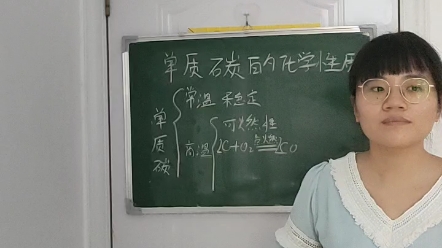 单质碳的化学性质
单质碳
常温 稳定
高温
可燃性
2C+O₂ 点燃 2CO